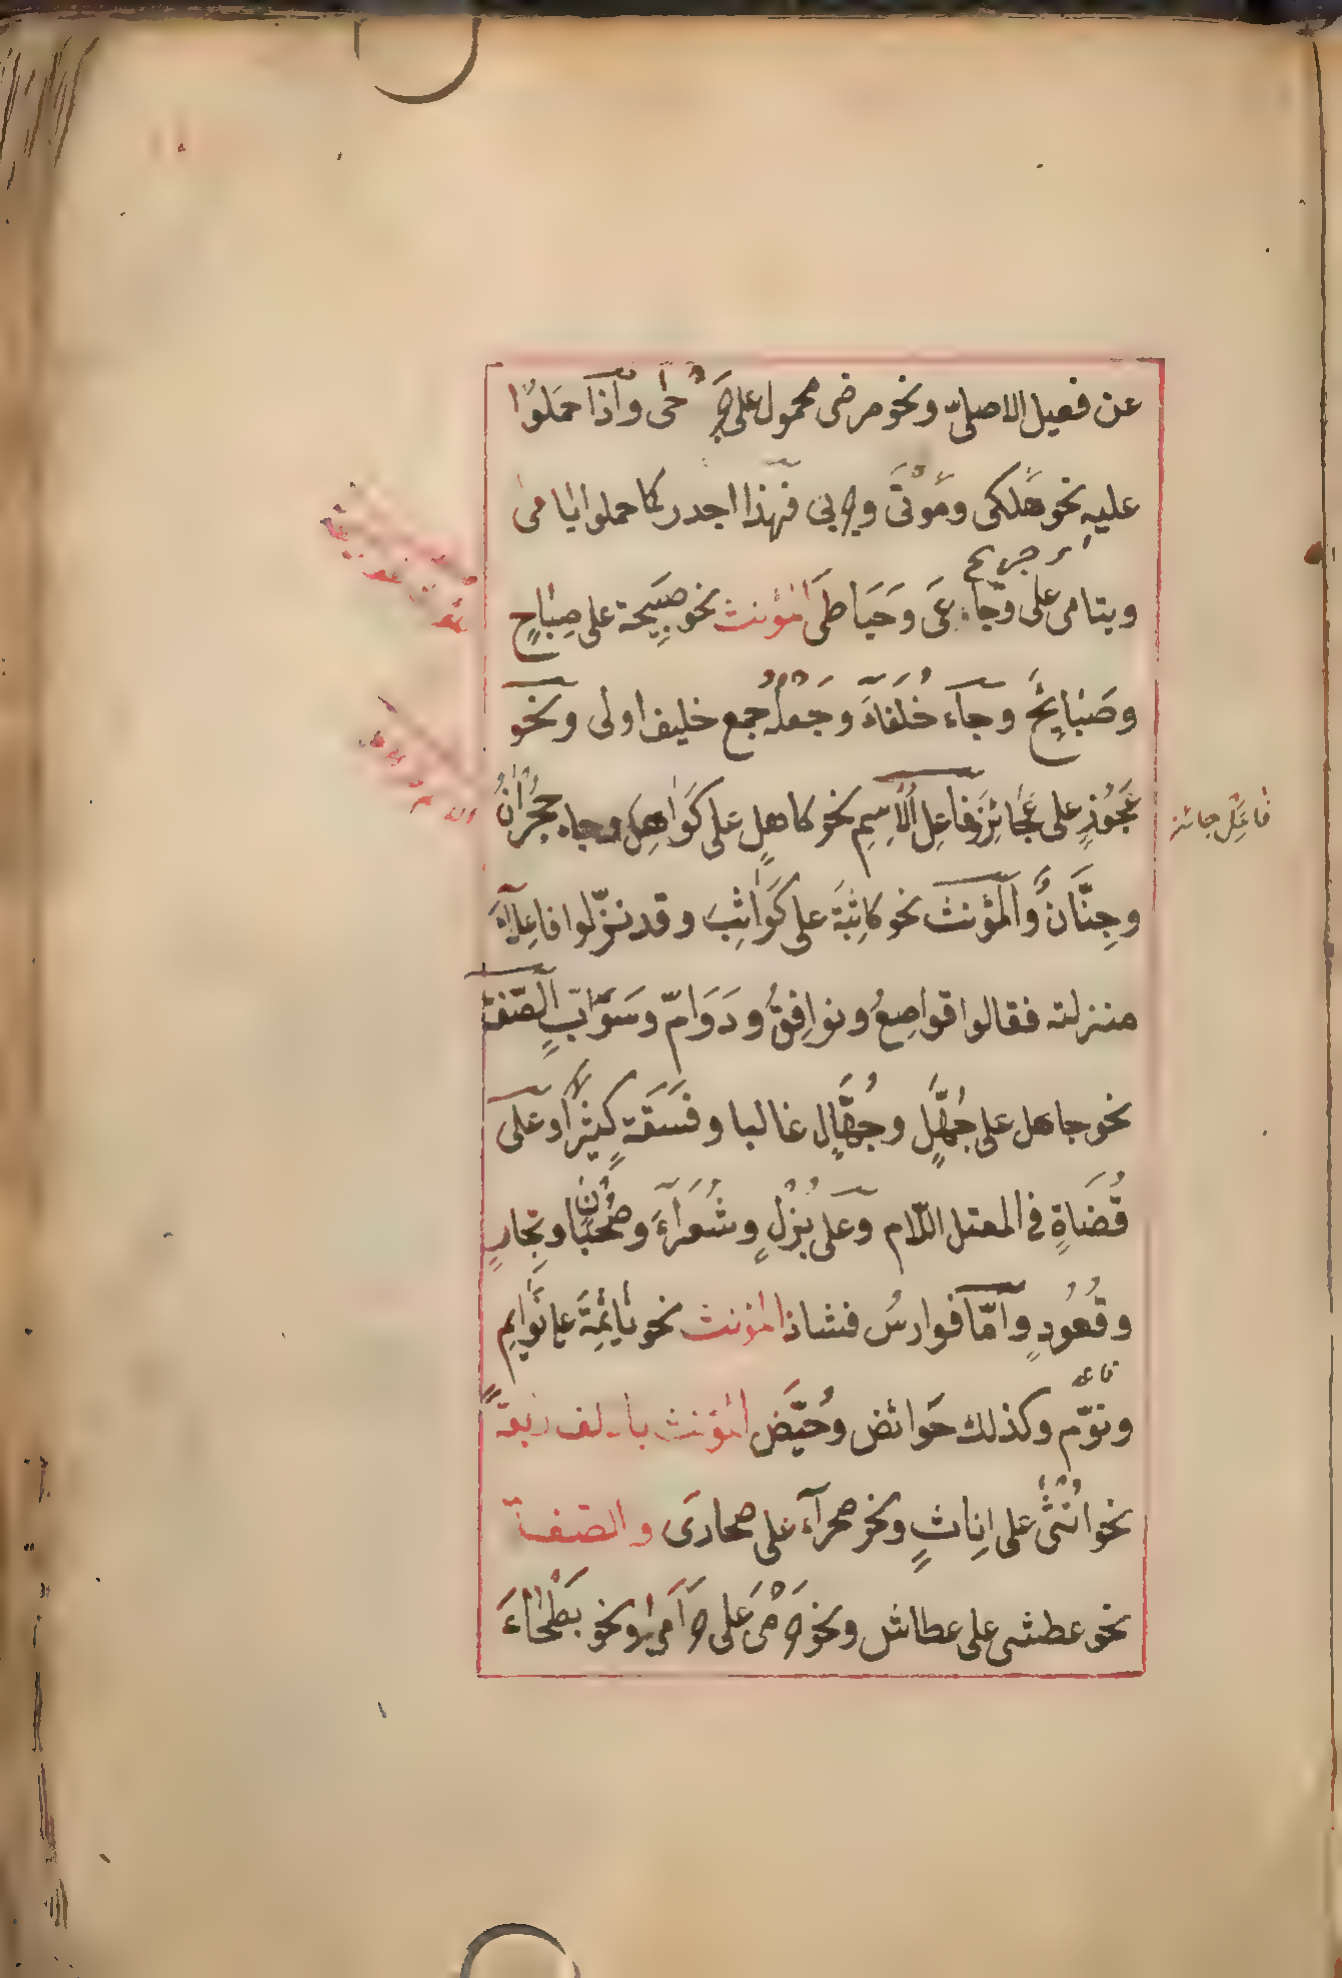 عن فعيل الاصلىّ ونحو مرضى محمول على جَرْحٰى واذا حملوا
عليه نحو هَلْكى ومَوْتَى وجربى فهذا اجدر كما حملوا ايامى
ويتامى على وَجَاعَى وَحَبَاطَى المؤنث نحو صَبِيحة على صِبَاحٍ
جريح
وصَبَايِحَ وجاء خُلَفَاءَ وَجَعْلُهُ جمع خليف اولى ونحو
عَجُوزٍ على عَجَائِزَ وفاعِل الاسمِ نحو كاهلٍ على كَوَاهِلَ وجاء حُجْرَانٌ
فاعل جائز
وجِنَّانٌ والمؤنث نحو كاثِبَةَ على كَوَاثِبَ وقد نزّلوا فاعِلاءَ
منزلته فقالوا قواصِعُ ونوافِقُ ودَوَامّ وسَوَابّ الصّفة
نحو جاهل على جُهَّلٍ وجُهَّالٍ غالبا وفَسَقَةٍ كثيرًا وعلى
قُضَاةٍ فى المعتل اللّام وعلى بُزْلٍ وشُعَرَاءَ وصُحْبَانٍ وتِجَارٍ
وقُعُودٍ وامّا فوارسُ فشاذ المؤنث نحو نائِمَةَ على نَوَائِمَ
ونُوَّم وكذلك حَوائض وحُيَّض المؤنث بالالف رابعة
نحو انْثٰى على اِناثٍ ونحو صحراءَ على صحارَى والصّفة
نحو عطشى على عطاش ونحو حَرْمَى على حَرَامٰى ونحو بَطْحَاءَ